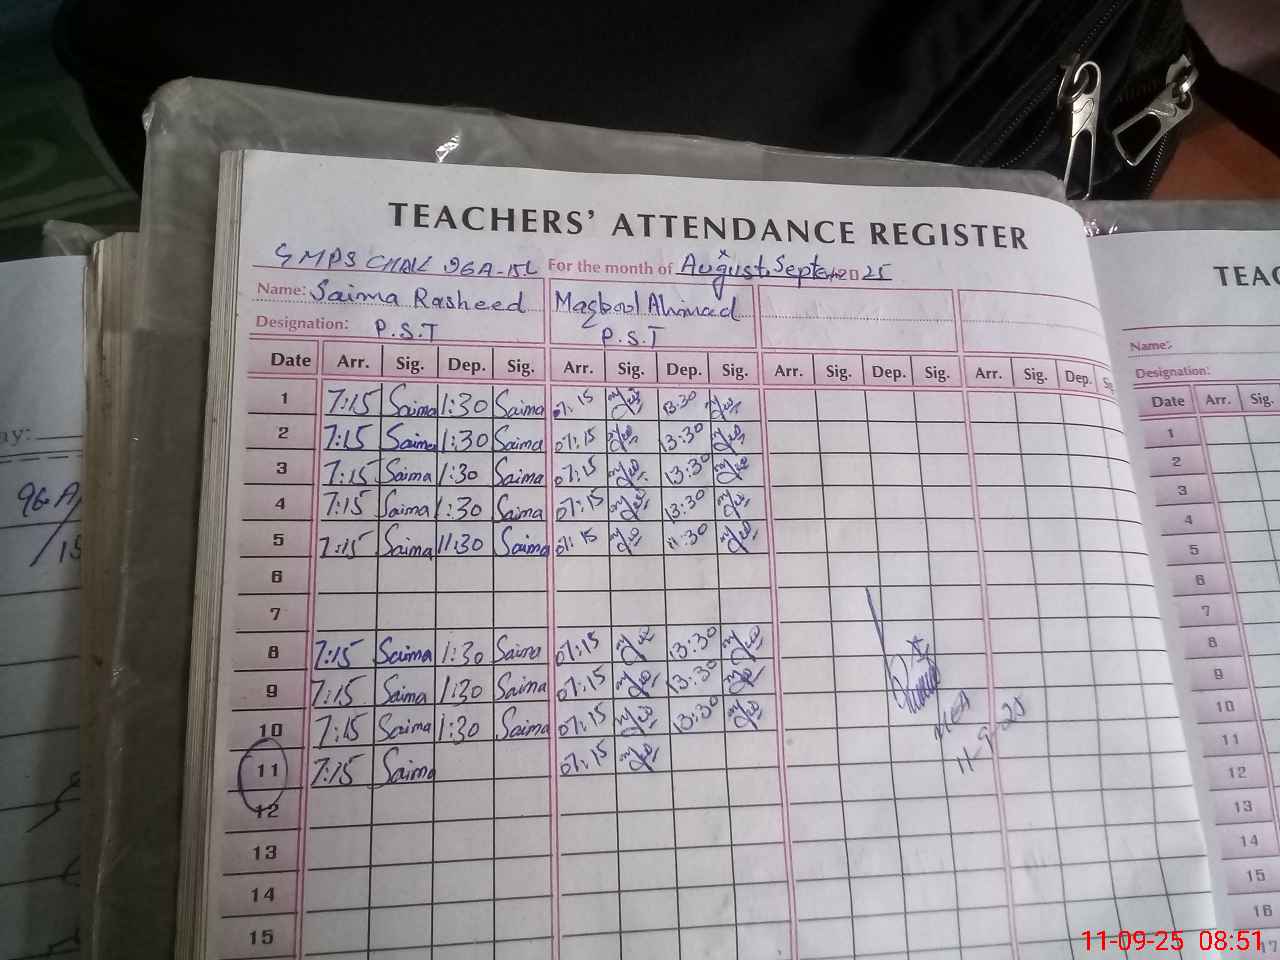 TEACHERS' ATTENDANCE REGISTER
GMPS CHAK 96A-15L For the month of August, Septem 2025
Name: Saima Rasheed Maqbool Ahmad
Designation: P.S.T P.S.T
Date Arr. Sig. Dep. Sig. Arr. Sig. Dep. Sig. Arr. Sig. Dep. Sig. Arr. Sig. Dep. Sig.
1 7:15 Saima 1:30 Saima 07:15 13:30
2 7:15 Saima 1:30 Saima 07:15 13:30
3 7:15 Saima 1:30 Saima 07:15 13:30
4 7:15 Saima 1:30 Saima 07:15 13:30
5 7:15 Saima 11:30 Saima 07:15 11:30
6
7
8 7:15 Saima 1:30 Saima 07:15 13:30
9 7:15 Saima 1:30 Saima 07:15 13:30
10 7:15 Saima 1:30 Saima 07:15 13:30
11 7:15 Saima 07:15
12
13
14
15
11-9-25
TEAC
Name:
Designation:
Date Arr. Sig.
1
2
3
4
5
6
7
8
9
10
11
12
13
14
15
16
17
ay:
96-A
/15
11-09-25 08:51